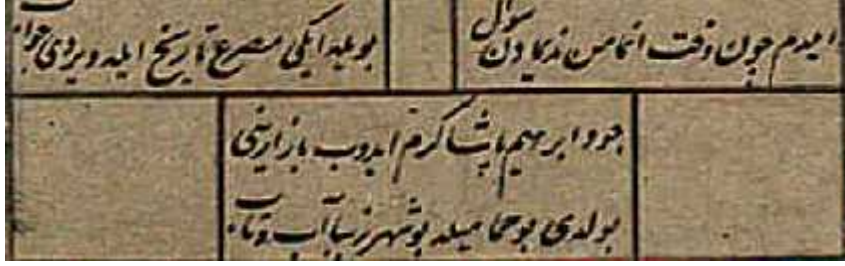 ایلدم چون وقت اتمامن ندیمادن سؤال
بویله ایکی مصرع تاریخ ایله ویردی جواب
جود ابرهیم پاشا کرم ایدوب بازارینی
بولدی بو حمامیله بو شهر زیبا آب و تاب